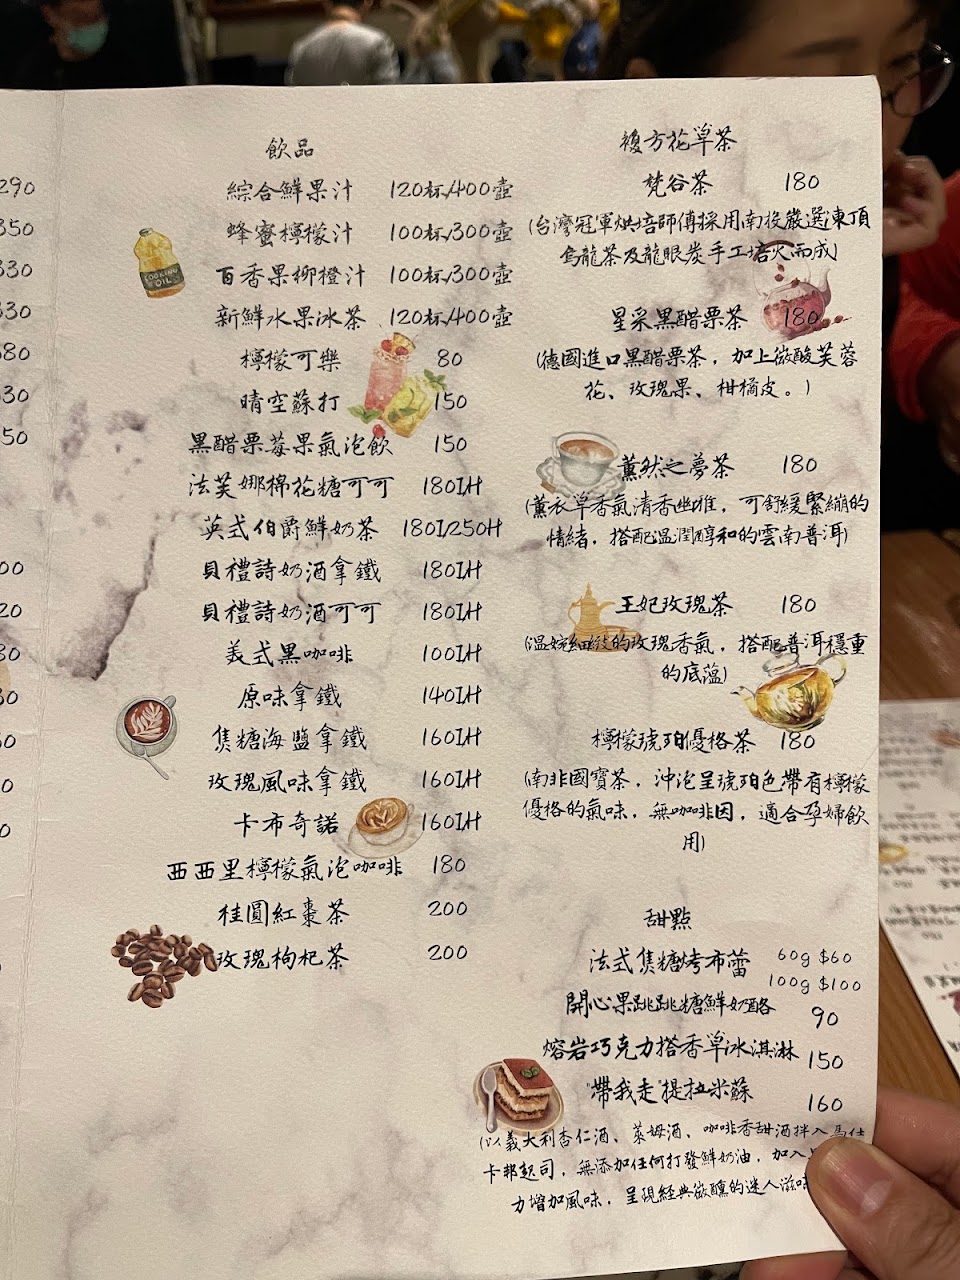 290
350
330
330
380
330
350
00
20
80
30
30
0
0
飲品
綜合鮮果汁 120杯/400壺
蜂蜜檸檬汁 100杯/300壺
COOKING OIL
百香果柳橙汁 100杯/300壺
新鮮水果冰茶 120杯/400壺
檸檬可樂 80
晴空蘇打 150
黑醋栗莓果氣泡飲 150
法芙娜棉花糖可可 180I/H
英式伯爵鮮奶茶 180I/250H
貝禮詩奶酒拿鐵 180I/H
貝禮詩奶酒可可 180I/H
義式黑咖啡 100I/H
原味拿鐵 140I/H
焦糖海鹽拿鐵 160I/H
玫瑰風味拿鐵 160I/H
卡布奇諾 160I/H
西西里檸檬氣泡咖啡 180
桂圓紅棗茶 200
玫瑰枸杞茶 200
複方花草茶
梵谷茶 180
(台灣冠軍烘培師傅採用南投嚴選凍頂
烏龍茶及龍眼炭手工培火而成)
星采黑醋栗茶 180
(德國進口黑醋栗茶，加上微酸芙蓉
花、玫瑰果、柑橘皮。)
薰然之夢茶 180
(薰衣草香氣清香幽雅，可舒緩緊繃的
情緒，搭配溫潤醇和的雲南普洱)
王妃玫瑰茶 180
(溫婉細緻的玫瑰香氣，搭配普洱穩重
的底蘊)
檸檬琥珀優格茶 180
(南非國寶茶，沖泡呈琥珀色帶有檸檬
優格的氣味，無咖啡因，適合孕婦飲
用)
甜點
法式焦糖烤布蕾 60g $60
100g $100
開心果跳跳糖鮮奶酪 90
熔岩巧克力搭香草冰淇淋 150
"帶我走"提拉米蘇 160
(以義大利杏仁酒、萊姆酒、咖啡香甜酒拌入馬仕
卡邦起司，無添加任何打發鮮奶油，加入
力增加風味，呈現經典微醺的迷人滋味